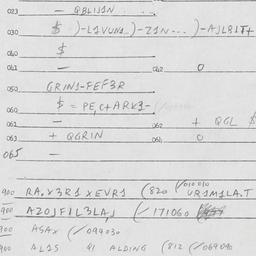 023 — QBLIJIN
030 $ )-L1VUN1-)-Z1N--- )-AJL8IT+
040 $
041 — 042 0
050 GRINS-FEF3R
060 $ = PE,C+ARK1-
061 — 062 + QGL $
063 + QGRIN 064 0
065 —
900 RA.X3R1 XEVR1 (820 (/010010 UR1M1LA.T
900 AZOJF1L3LA,J (/171060
900 ASAX (/094030
900 AL1S 91 ALDING (812 (/069090